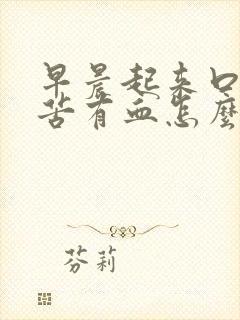 早晨起来口
苦有血怎麽
芬莉